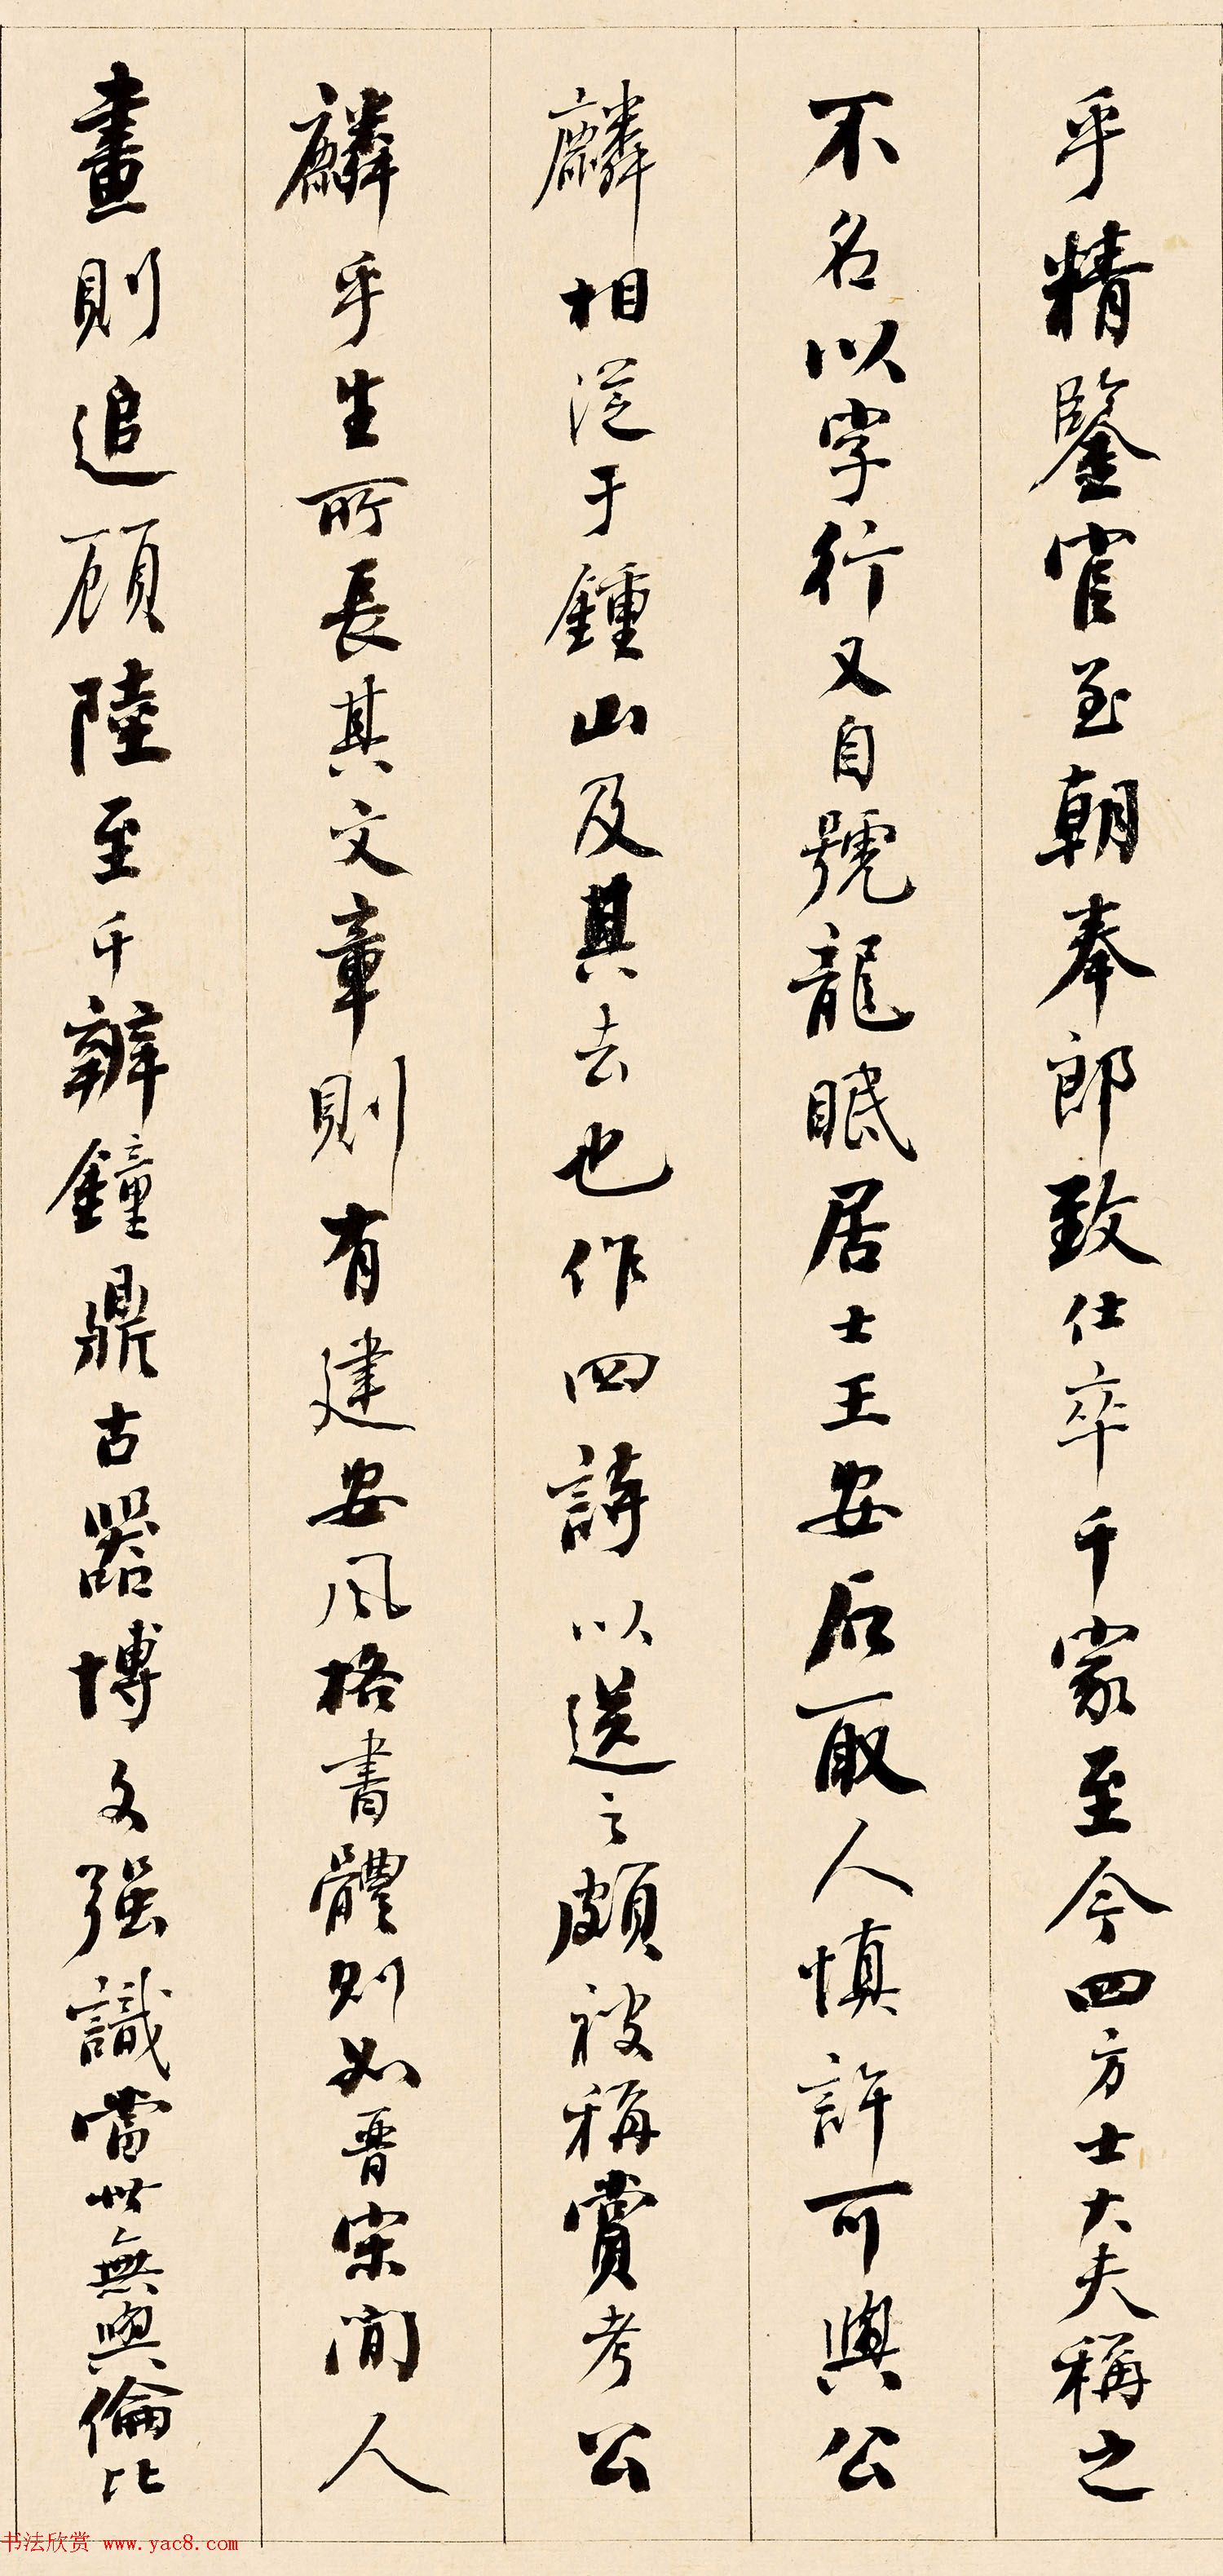 乎精鑒官至朝奉郎致仕卒于家至今四方士大夫稱之
不名以字行又自號龍眠居士王安石取人慎許可與公
麟相從于鍾山及其去也作四詩以送之頗被稱賞考公
麟乎生所長其文章則有建安風格書體則如晋宋間人
畫則追顧陸至于辨鐘鼎古器博文强識當世無與倫比
书法欣赏 www.yac8.com